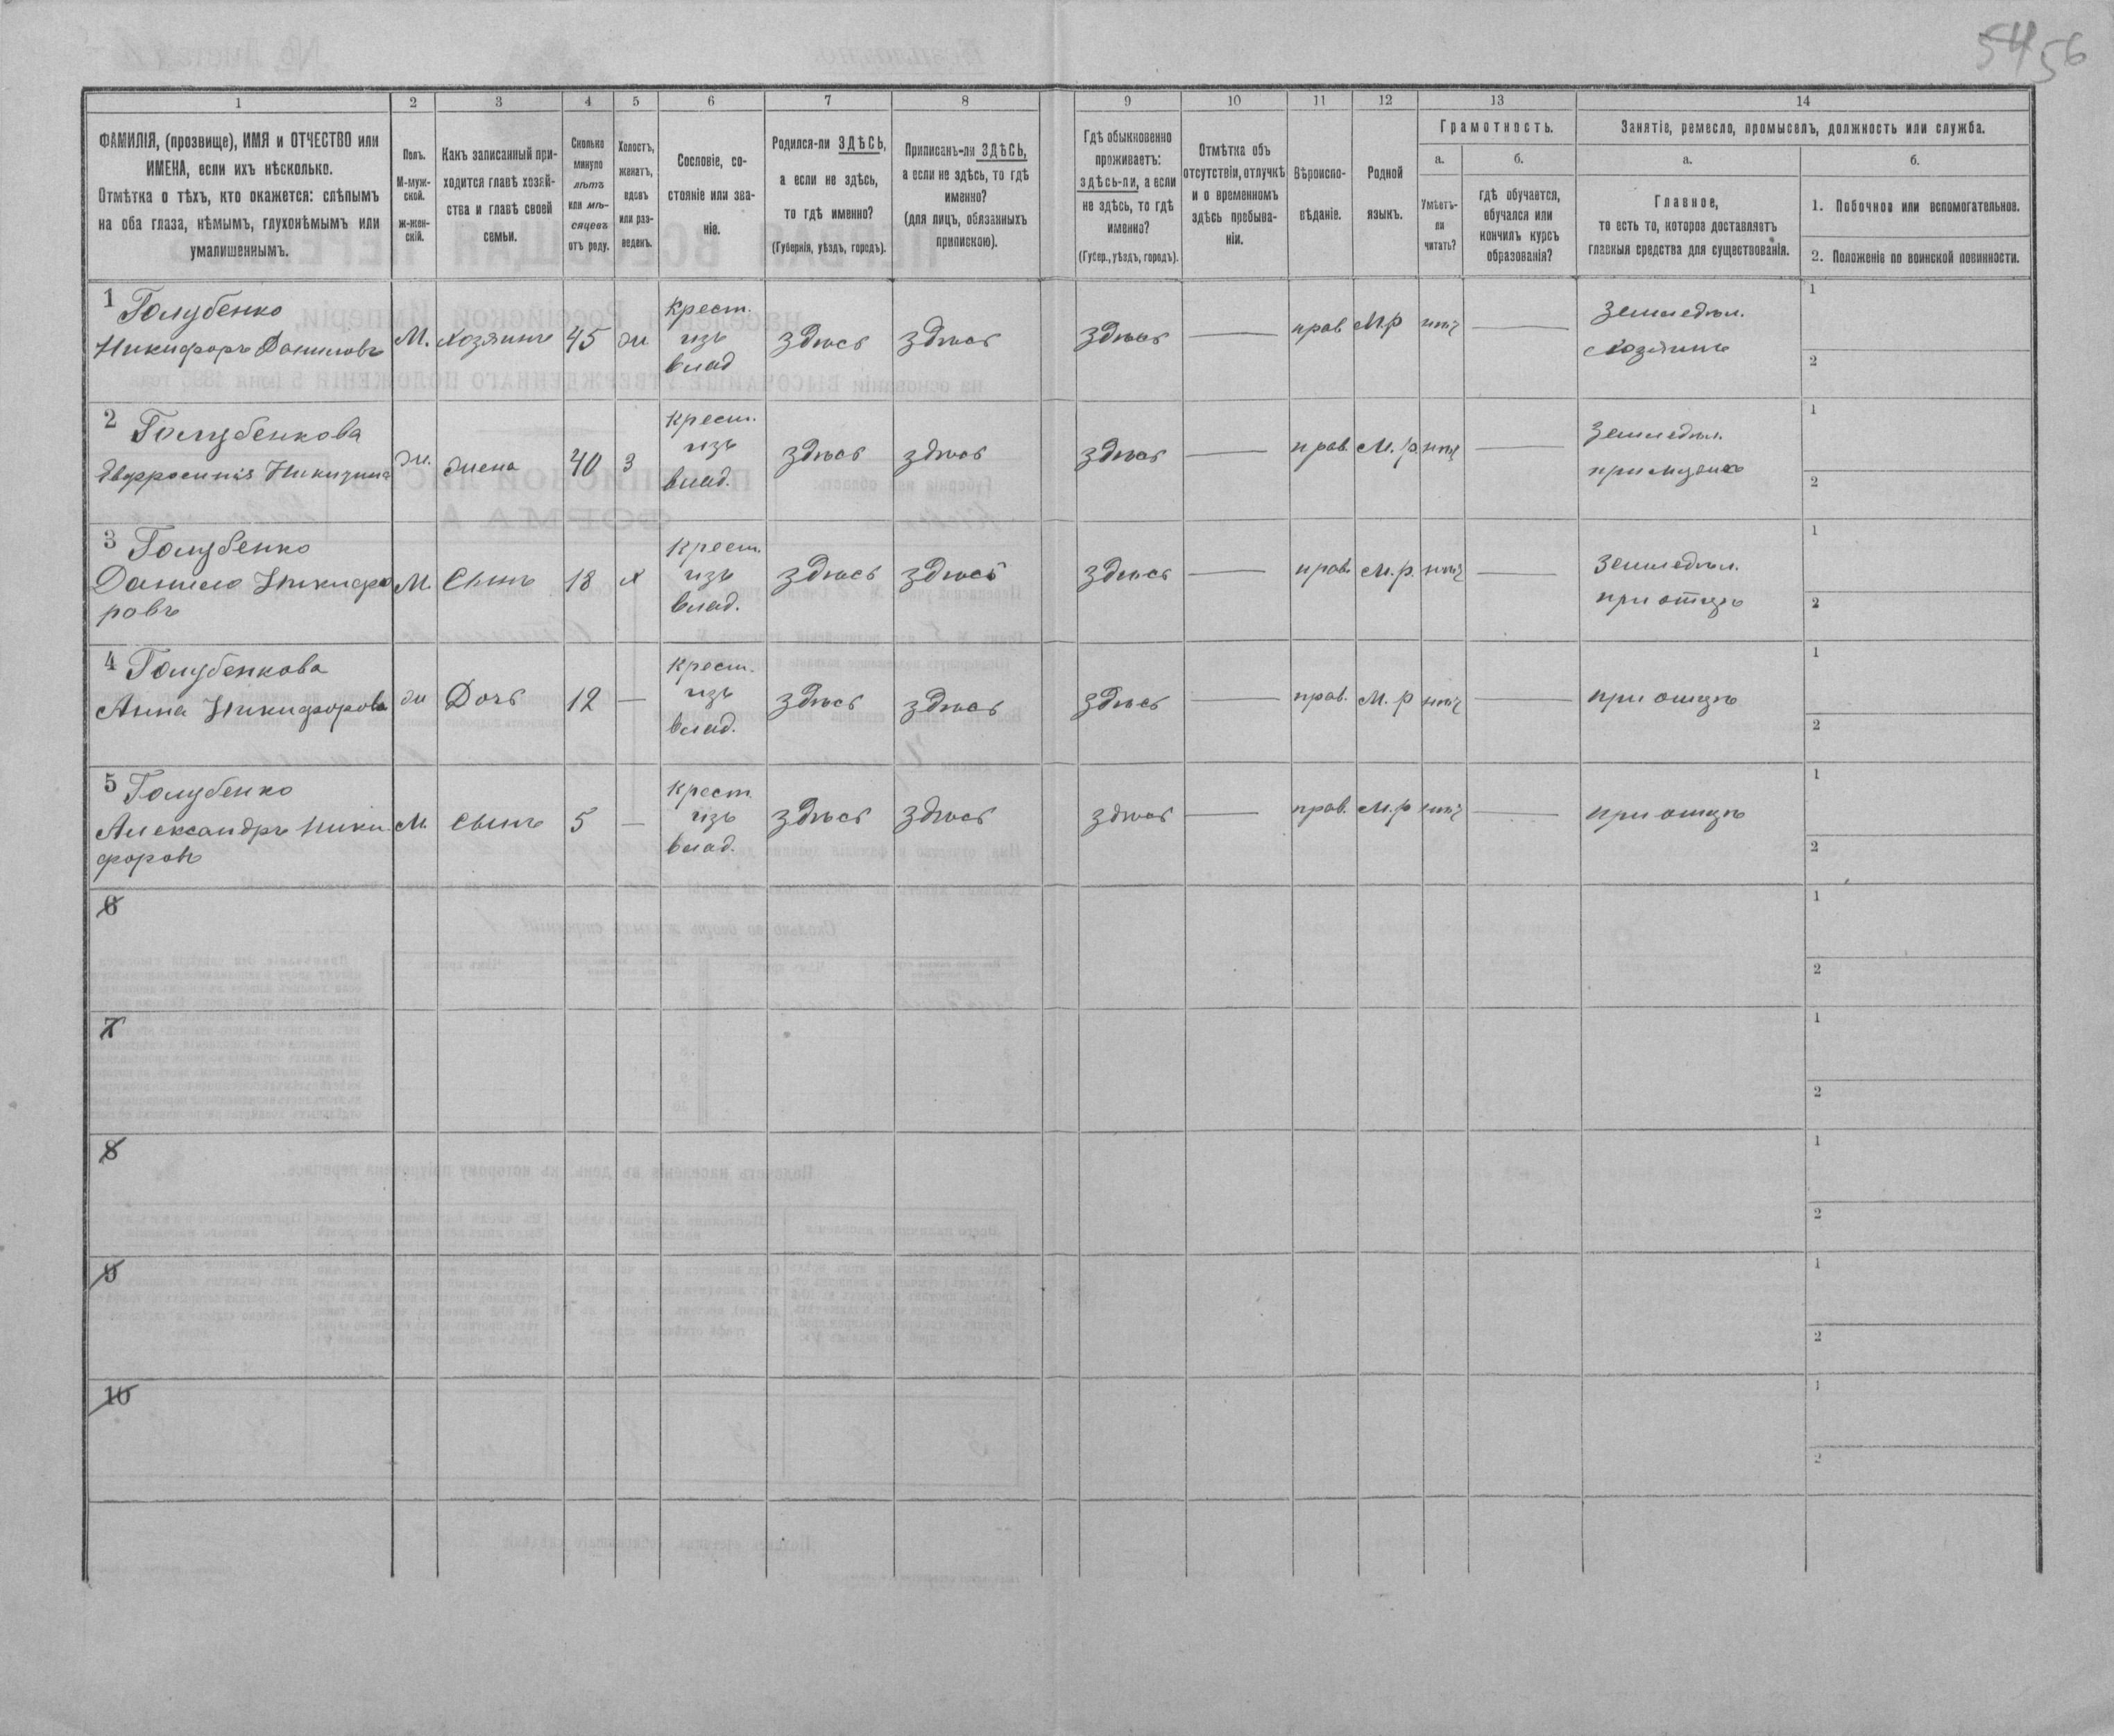 54 56
1 2 3 4 5 6 7 8 9 10 11 12 13 14
ФАМИЛІЯ, (прозвище), ИМЯ и ОТЧЕСТВО или
ИМЕНА, если ихъ нѣсколько.
Отмѣтка о тѣхъ, кто окажется: слѣпымъ
на оба глаза, нѣмымъ, глухонѣмымъ или
умалишеннымъ.
Полъ.
М-муж-
ской.
ж-жен-
скій.
Какъ записанный при-
ходится главѣ хозяй-
ства и главѣ своей
семьи.
Сколько
минуло
лѣтъ
или мѣ-
сяцевъ
отъ роду.
Холостъ,
женатъ,
вдовъ
или раз-
веденъ.
Сословіе, со-
стояніе или зва-
ніе.
Родился-ли ЗДѢСЬ,
а если не здѣсь,
то гдѣ именно?
(Губернія, уѣздъ, городъ).
Приписанъ-ли ЗДѢСЬ,
а если не здѣсь, то гдѣ
именно?
(для лицъ, обязанныхъ
припискою).
Гдѣ обыкновенно
проживаетъ:
здѣсь-ли, а если
не здѣсь, то гдѣ
именно?
(Губер., уѣздъ, городъ).
Отмѣтка объ
отсутствіи, отлучкѣ
и о временномъ
здѣсь пребыва-
ніи.
Вѣроиспо-
вѣданіе.
Родной
языкъ.
Грамотность.
а.
Умѣетъ-
ли
читать?
б.
гдѣ обучается,
обучался или
кончилъ курсъ
образованія?
Занятіе, ремесло, промыселъ, должность или служба.
а.
Главное,
то есть то, которое доставляетъ
главныя средства для существованія.
б.
1. Побочное или вспомогательное.
2. Положеніе по воинской повинности.
1 Голубенко
Никифоръ Даниловъ
М. хозяинъ 45 ж
Крест.
изъ
влад
здѣсь здѣсь здѣсь — прав М.р нѣтъ —
Земледѣл.
хозяинъ
1
2
2 Голубенкова
Ж. жена 40 З
Крест.
изъ
влад.
здѣсь здѣсь здѣсь — прав. М.р. нѣтъ —
Земледѣл.
при мужѣ
1
2
3 Голубенко
Данило Никифо
ровъ
М. Сынъ 18 х
Крест.
изъ
влад.
здѣсь здѣсь здѣсь — прав. М.р. нѣтъ —
Земледѣл.
при отцѣ
1
2
4 Голубенкова
Анна Никифорова
ж Дочь 12 —
Крест.
изъ
влад.
здѣсь здѣсь здѣсь — прав. М.р нѣтъ —
при отцѣ
1
2
5 Голубенко
Александръ Ники-
форовъ
М. сынъ 5 —
Крест.
изъ
влад.
здѣсь здѣсь здѣсь — прав. М.р нѣтъ —
при отцѣ
1
2
6
1
2
7
1
2
8
1
2
9
1
2
10
1
2